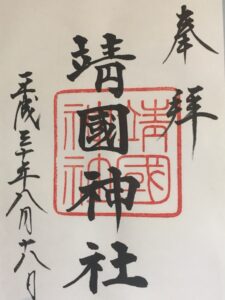 奉拝
靖國神社
靖國
神社
平成三十年八月十八日